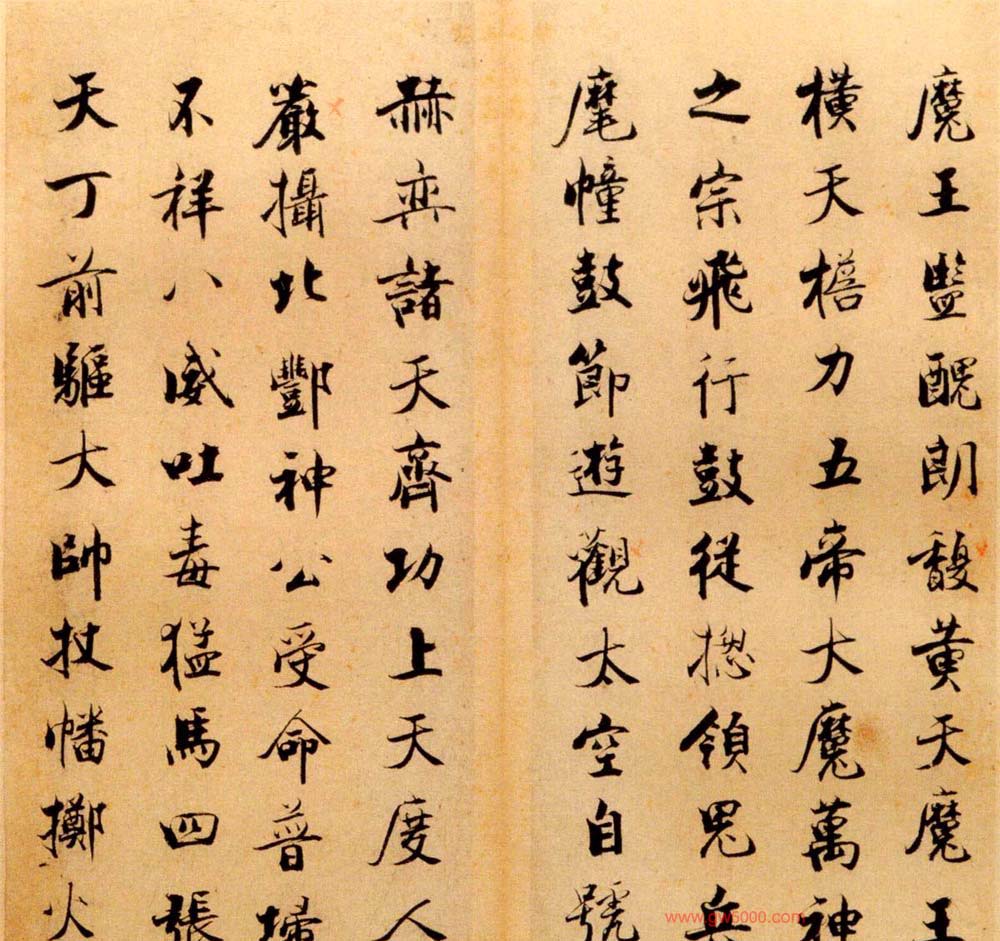 魔王監醜朗馥黄天魔王
橫天檐力五帝大魔萬神
之宗飛行鼓從摠領鬼兵
麾幢鼓節遊觀太空自號
赫奕諸天齊功上天度人
嚴攝北酆神公受命普掃
不祥八威吐毒猛馬四張
天丁前驅大帥杖幡擲火
www.gw5000.com